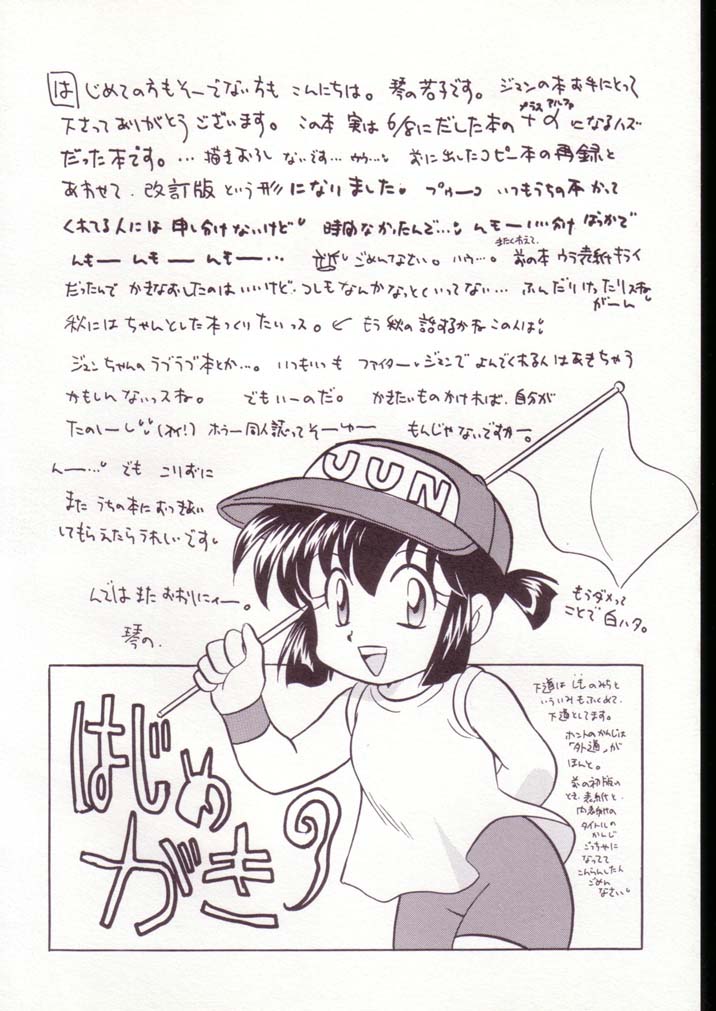 はじめての方もそーでない方も こんにちは。琴の若子です。ジュンの本お手にとって
下さってありがとうございます。この本 実は 6/8にだした本の +α になるハズ
プラス アルファ
だった本です。…描きおろし ないです…ウウ…。 前に出したコピー本の再録と
あわせて、改訂版 という形になりました。 プゥーつ いつもうちの本 かって
くれてる人には 申し分けないけど 時間なかったんで…。んもー…いい分け ばっかで
んもー んもー んもー… ごめんなさい。ハウ…。 前の本 ウラ表紙キライ
だったんで かきなおしたのはいいけど、つしもなんかなっとくいってない… ふんだりけったりスね
がーん
秋にはちゃんとした本つくりたいっス。 もう秋の話するかねこの人は
ジュンちゃんのラブラブ本とか…。 いつもいつも ファイター・ジュンで よんでくれる人はあきちゃう
かもしんないっスね。 でもいーのだ。 かきたいものかければ、自分が
たのしーし (オイ!) ホラー同人誌ってそーゆー もんじゃないですかー。
んー…。でも こりずに
また うちの本に おつきあい
してもらえたらうれしいです
んでは また おおりにィー。
琴の.
もうダメって
ことで 白ハタ。
JUN
はじめ
がき
下道は しものみちと
いういみもふくめて、
下道としてます。
ホントのかんじは
「外道」が
ほんと。
前の初版の
とき、表紙と、
内表紙の
タイトルの
かんじ
ごっちゃに
なってて
こんらんしたん
ごめん
なさい